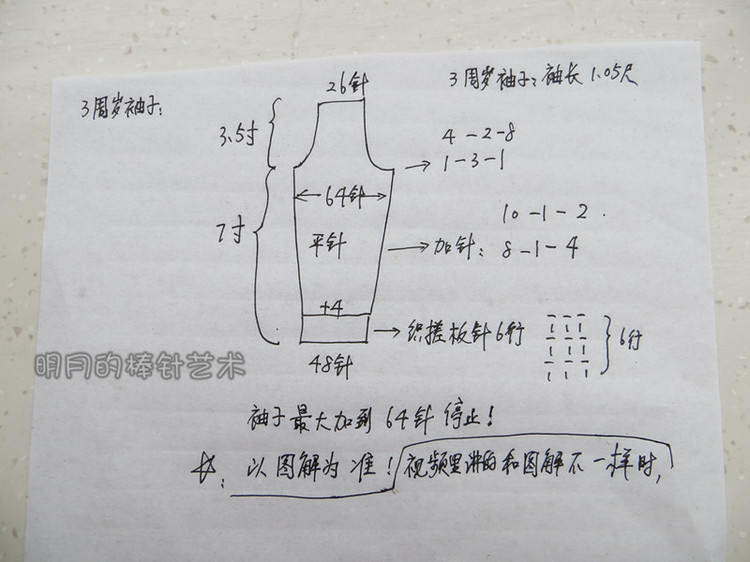 3周岁袖子:
26针
3周岁袖子:袖长1.05尺
3.5寸
4-2-8
1-3-1
64针
7寸
平针
10-1-2.
加针:8-1-4
+4
织搓板针6行
6行
48针
明月的棒针艺术
袖子最大加到64针停止!
☆:以图解为准!视频里讲的和图解不一样时,